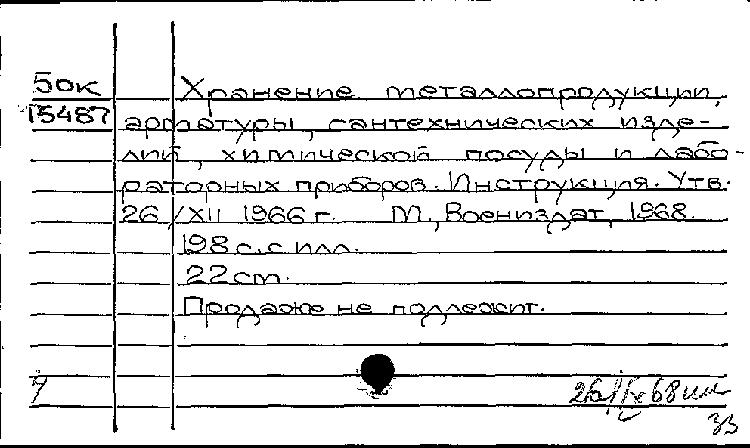 50к Хранение металлопродукции,
15487 арматуры, сантехнических изде-
лий, химической посуды и лабо-
раторных приборов. Инструкция. Утв.
26/XII 1966 г. М., Воениздат, 1968.
198 с. с илл.
22 cm.
Продаже не подлежит.